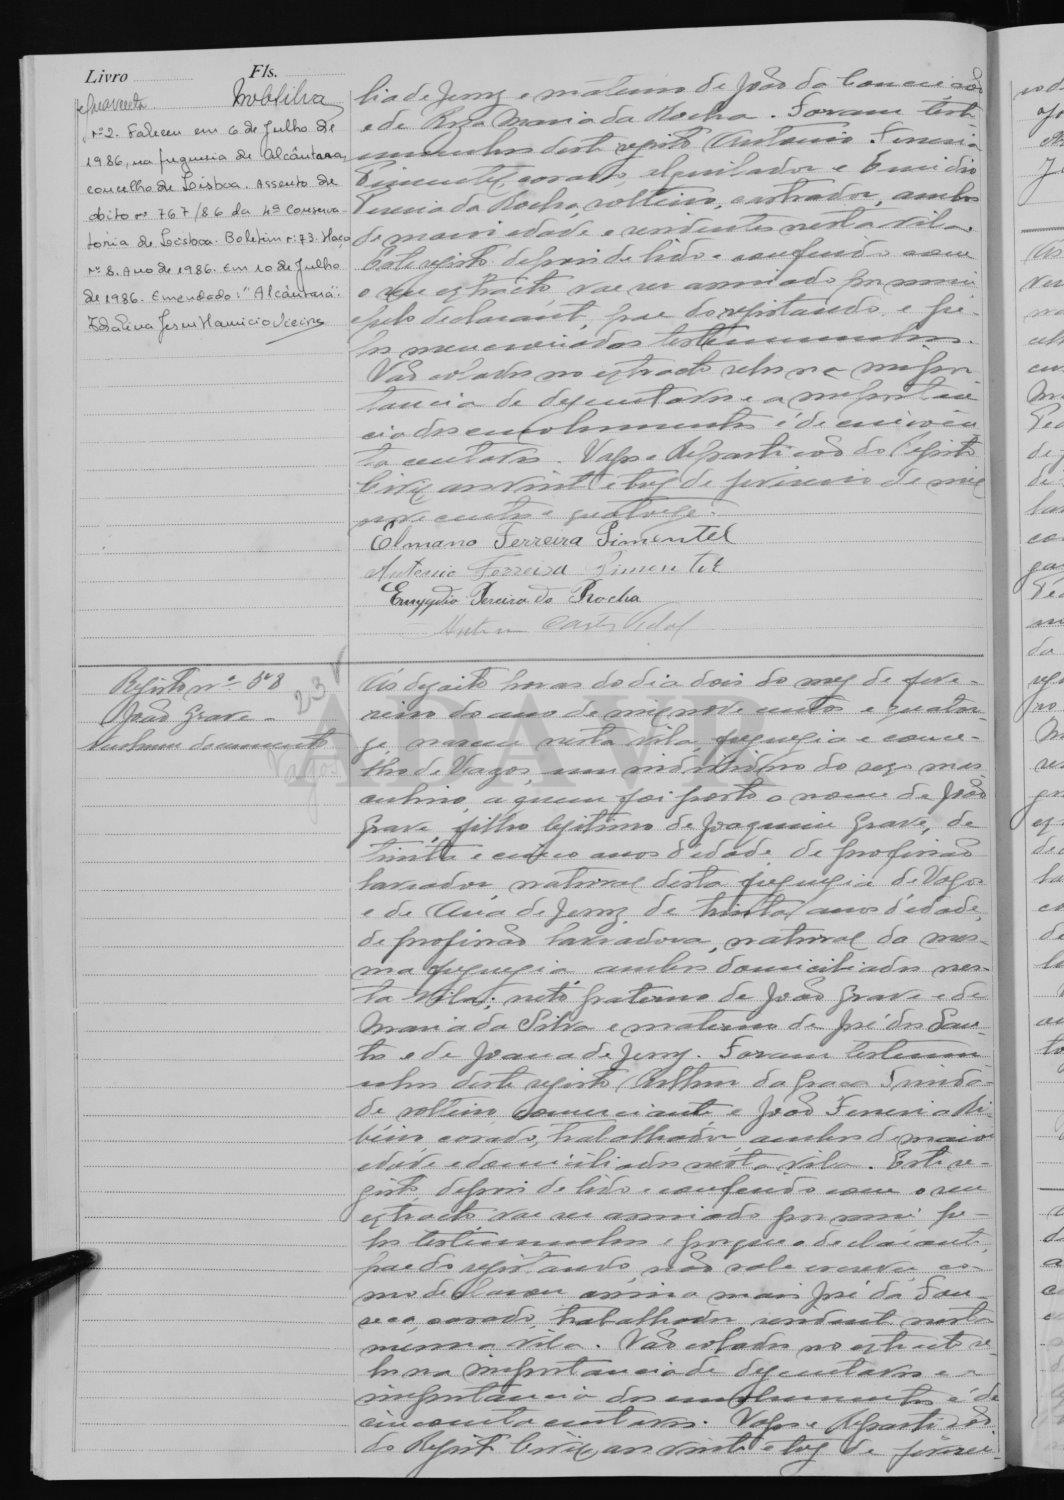 Livro Fls.
nº 2. Faleceu em 6 de Julho de
1986, na freguesia de Alcântara,
concelho de Lisboa. Assento de
óbito nº 767/86 da 4ª Conserva-
tória de Lisboa. Boletim nº 73. Maço
nº 8. Ano de 1986. Em 10 de Julho
de 1986. Emendado: "Alcântara".
de Jesus e materno de João da Conceição
e de Rosa Maria da Rocha. Foram teste
munhas deste registo Antonio Ferreira
Pimentel, casado, e Emidio
Pereira da Rocha, solteiro, ambos
de maior edade e residentes nesta vila.
Este registo depois de lido e conferido com
o seu extracto, vae ser assinado por mim
e pelo declarante, pae do registando, e pe-
las mencionadas testemunhas.
Vão colados no extracto selos na impor
tancia de dez centavos e a importan
cia dos emolumentos é de cincoen
ta centavos. Vagos e Repartição do Registo
Civil, aos vinte e tres de fevereiro de mil
nove centos e quatorze.
Elmano Ferreira Pimentel
Antonio Ferreira Pimentel
Emygdio Pereira da Rocha
Vidal
Registo nº 58
João Grave
Nenhum documento
23
Vagos
ADAVR
Ás dezoito horas do dia dois do mez de feve-
reiro do ano de mil nove centos e quator-
ze, nasceu nesta vila, freguezia e conce-
lho de Vagos, um individuo do sexo mas
culino, a quem foi posto o nome de João
Grave, filho legitimo de Joaquim Grave, de
trinta e cinco anos d'edade, de profissão
lavrador, natural desta freguezia de Vagos
e de Ana de Jesus, de trinta anos d'edade,
de profissão lavradora, natural da mes-
ma freguezia, ambos domiciliados nes-
ta vila; neto paterno de João Grave e de
Maria da Silva e materno de José dos San-
tos e de Joana de Jesus. Foram testemu
nhas deste registo Arthur da Graça Trinda-
de, solteiro, comerciante e João Ferreira Ri-
beiro, casado, trabalhador, ambos de maior
edade e domiciliados nesta vila. Este re-
gisto, depois de lido e conferido com o seu
extracto vae ser assinado por mim, pe-
las testemunhas e porque o declarante,
pae do registando, não sabe escrever, co-
mo declarou, assina mais José da Fon-
seca, casado, trabalhador, residente nesta
mesma vila. Vão colados no extracto se-
los na importancia de dez centavos e a
importancia dos emolumentos é de
cincoenta centavos. Vagos e Repartição
do Registo Civil, aos vinte e tres de feverei-